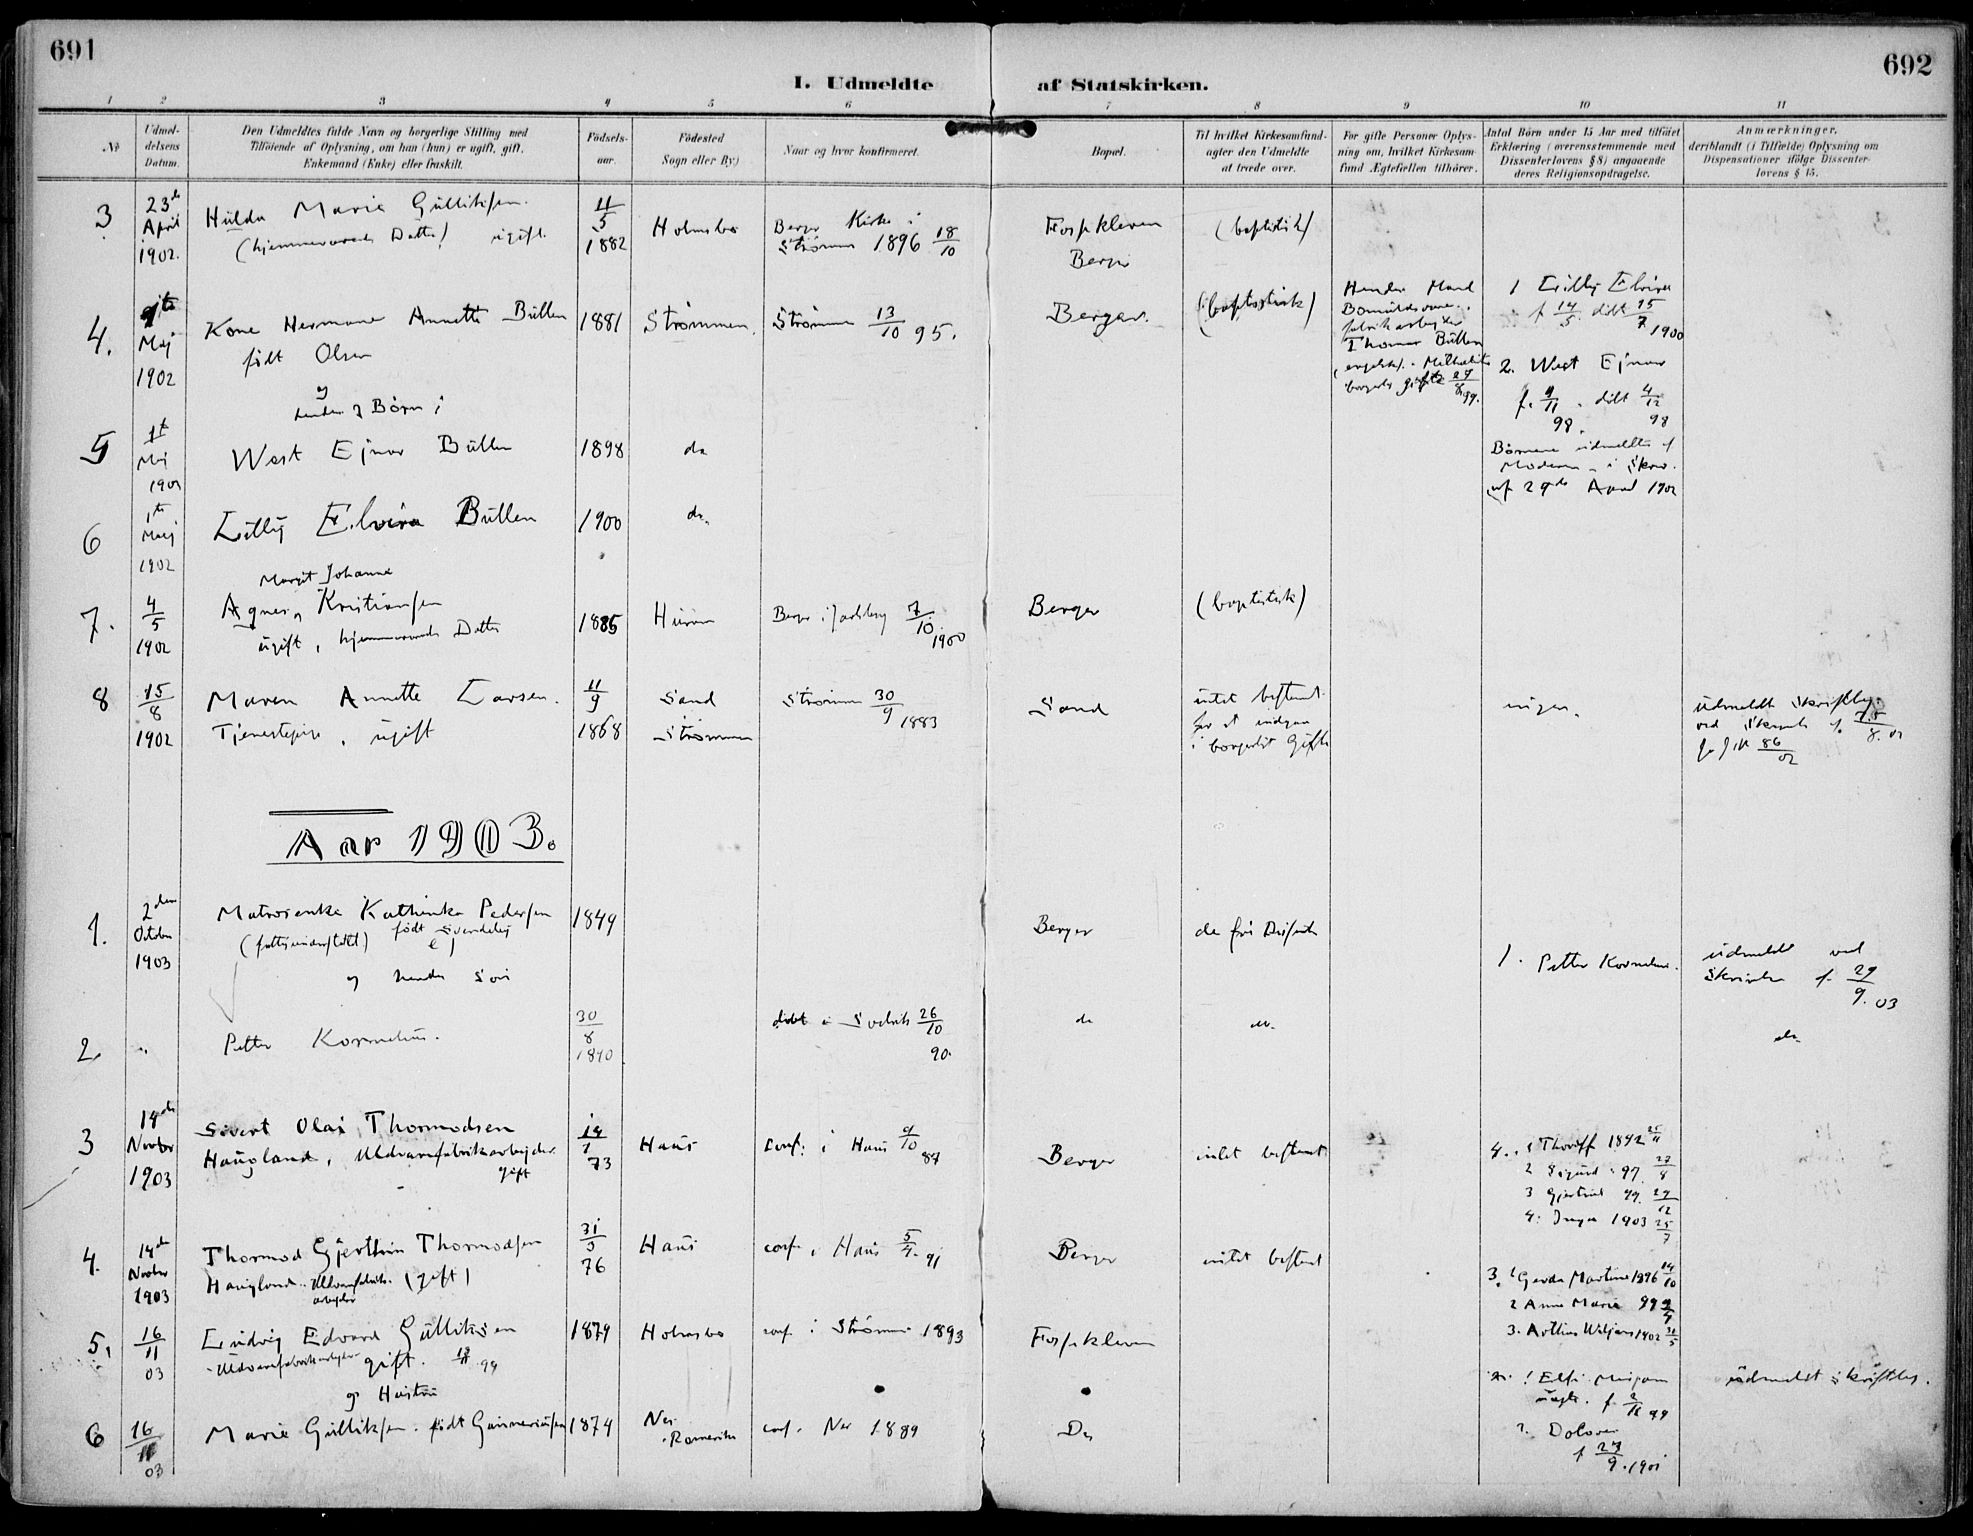 691
I. Udmeldte
af Statskirken.
692
1 2 3 4 5 6 7 8 9 10 11
№
Udmel-
delsens
Datum.
Den Udmeldtes fulde Navn og borgerlige Stilling med
Tilföiende af Oplysning, om han (hun) er ugift, gift,
Enkemand (Enke) eller fraskilt.
Födsels-
aar.
Födested
Sogn eller By)
Naar og hvor konfirmeret.
Bopæl.
Til hvilket Kirkesamfund-
agter den Udmeldte
at træde over.
For gifte Personer Oplys-
ning om, hvilket Kirkesam-
fund Ægtefællen tilhörer.
Antal Börn under 15 Aar med tilföiet
Erklæring (overensstemmende med
Dissenterlovens § 8) angaaende
deres Religionsopdragelse.
Anmærkninger,
deriblandt (i Tilfælde) Oplysning om
Dispensationer ifölge Dissenter-
lovens § 15.
3
23de
April
1902.
Hulda Marie Gulliksen.
(hjemmeværende Datter) ugift.
11/5
1882
Holmsbo
Berger Kirke i
Strømm 1896 18/10
Fossekleven
Berger
(baptistisk)
4.
Maj
1902
Kone Hermane Annette Bullen
født Olsen
og
hendes 2 Børn:
1881
Strømmen.
Strømm 13/10 95.
Berger.
(baptistisk)
Hendes Mand
Thomas Bullen
27/8 99.
1 Lilly Elvira
f 14/5 døbt 15/7 1900
2. West Ejnar
f. 9/11 98. døbt 4/12 98
Børnene udmeldte af
Moderen i Skriv.
af 29de April 1902
5
1te
Maj
1902
West Ejnar Bullen
1898
do
6
1te
Maj
1902
Lilly Elvira Bullen
1900
do.
7.
4/5
1902
Margit Johanne
Agnes Kristiansen
ugift, hjemmeværende Datter
1885
Hurum
Berger i Jarlsberg 7/10 1900
Berger
(baptistisk)
8
15/8
1902
Maren Annette Larsen.
Tjenestepige, ugift
11/9
1868
Sand
Strømmen
Strømm 30/9 1883
Sand
intet bestemt
for at indgaa
i borgerligt Gifte
ingen.
udmeldt Skriftlig
ved Skrivelse f. 15/8. 02
86/02
Aar 1903.
1.
2den
October
1903
Matrosenke Kathinka Pedersen
(fattigunderstøttet) født Svendsby
og hendes Søn
1849
Berger
de fri Dissent
1. Petter Kornelius.
udmeldt ved
Skrivelse f. 29/9. 03
2.
"
Petter Kornelius.
30/8
1890
døbt i Svelvik 26/10 90.
do
do.
do.
3
14de
Novbr
1903
Sivert Olai Thormodsen
Haugland, Uldvarefabrikarbejder.
gift
73
Haus
conf. i Haus 9/10 87
Berger
intet bestemt
4. 1 Thorleif 1892
2 Sigurd 97. 27/8
3 Gjertrud 99. 29/12
4. Inga 1903 25/7
4.
14de
Novbr
1903
Thormod Gjerthin Thormodsen
Haugland. Uldvarefabrik-
arbejder (gift)
31/3
76
Haus
conf. i Haus 5/4. 91
Berger
intet bestemt
3. 1 Gerda Martine 1896 14/10
2 Anna Marie 99
3. Arthur Wiljam 1902 31/5
5.
16/11
03
Ludvig Edvard Gulliksen
Uldvarefabrikarbejder gift.
og Hustru
1879
Holmsbo
conf i Strømm 1893
Fossekleven
2. 1 Elfi Mirjam
2. Dolores
f 23/9. 1901
udmeldt skriftlig.
6
16/11
03
Marie Gulliksen. født Gunneriusen
1874
Nes
Romerike
conf. Nes 1889
Do